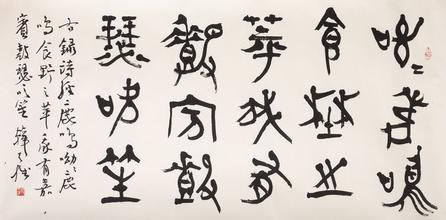 呦呦鹿鳴
食野之
苹我有
嘉賓鼓
瑟吹笙
右錄詩經之鹿鳴呦呦鹿
鳴食野之苹我有嘉
賓鼓瑟吹笙